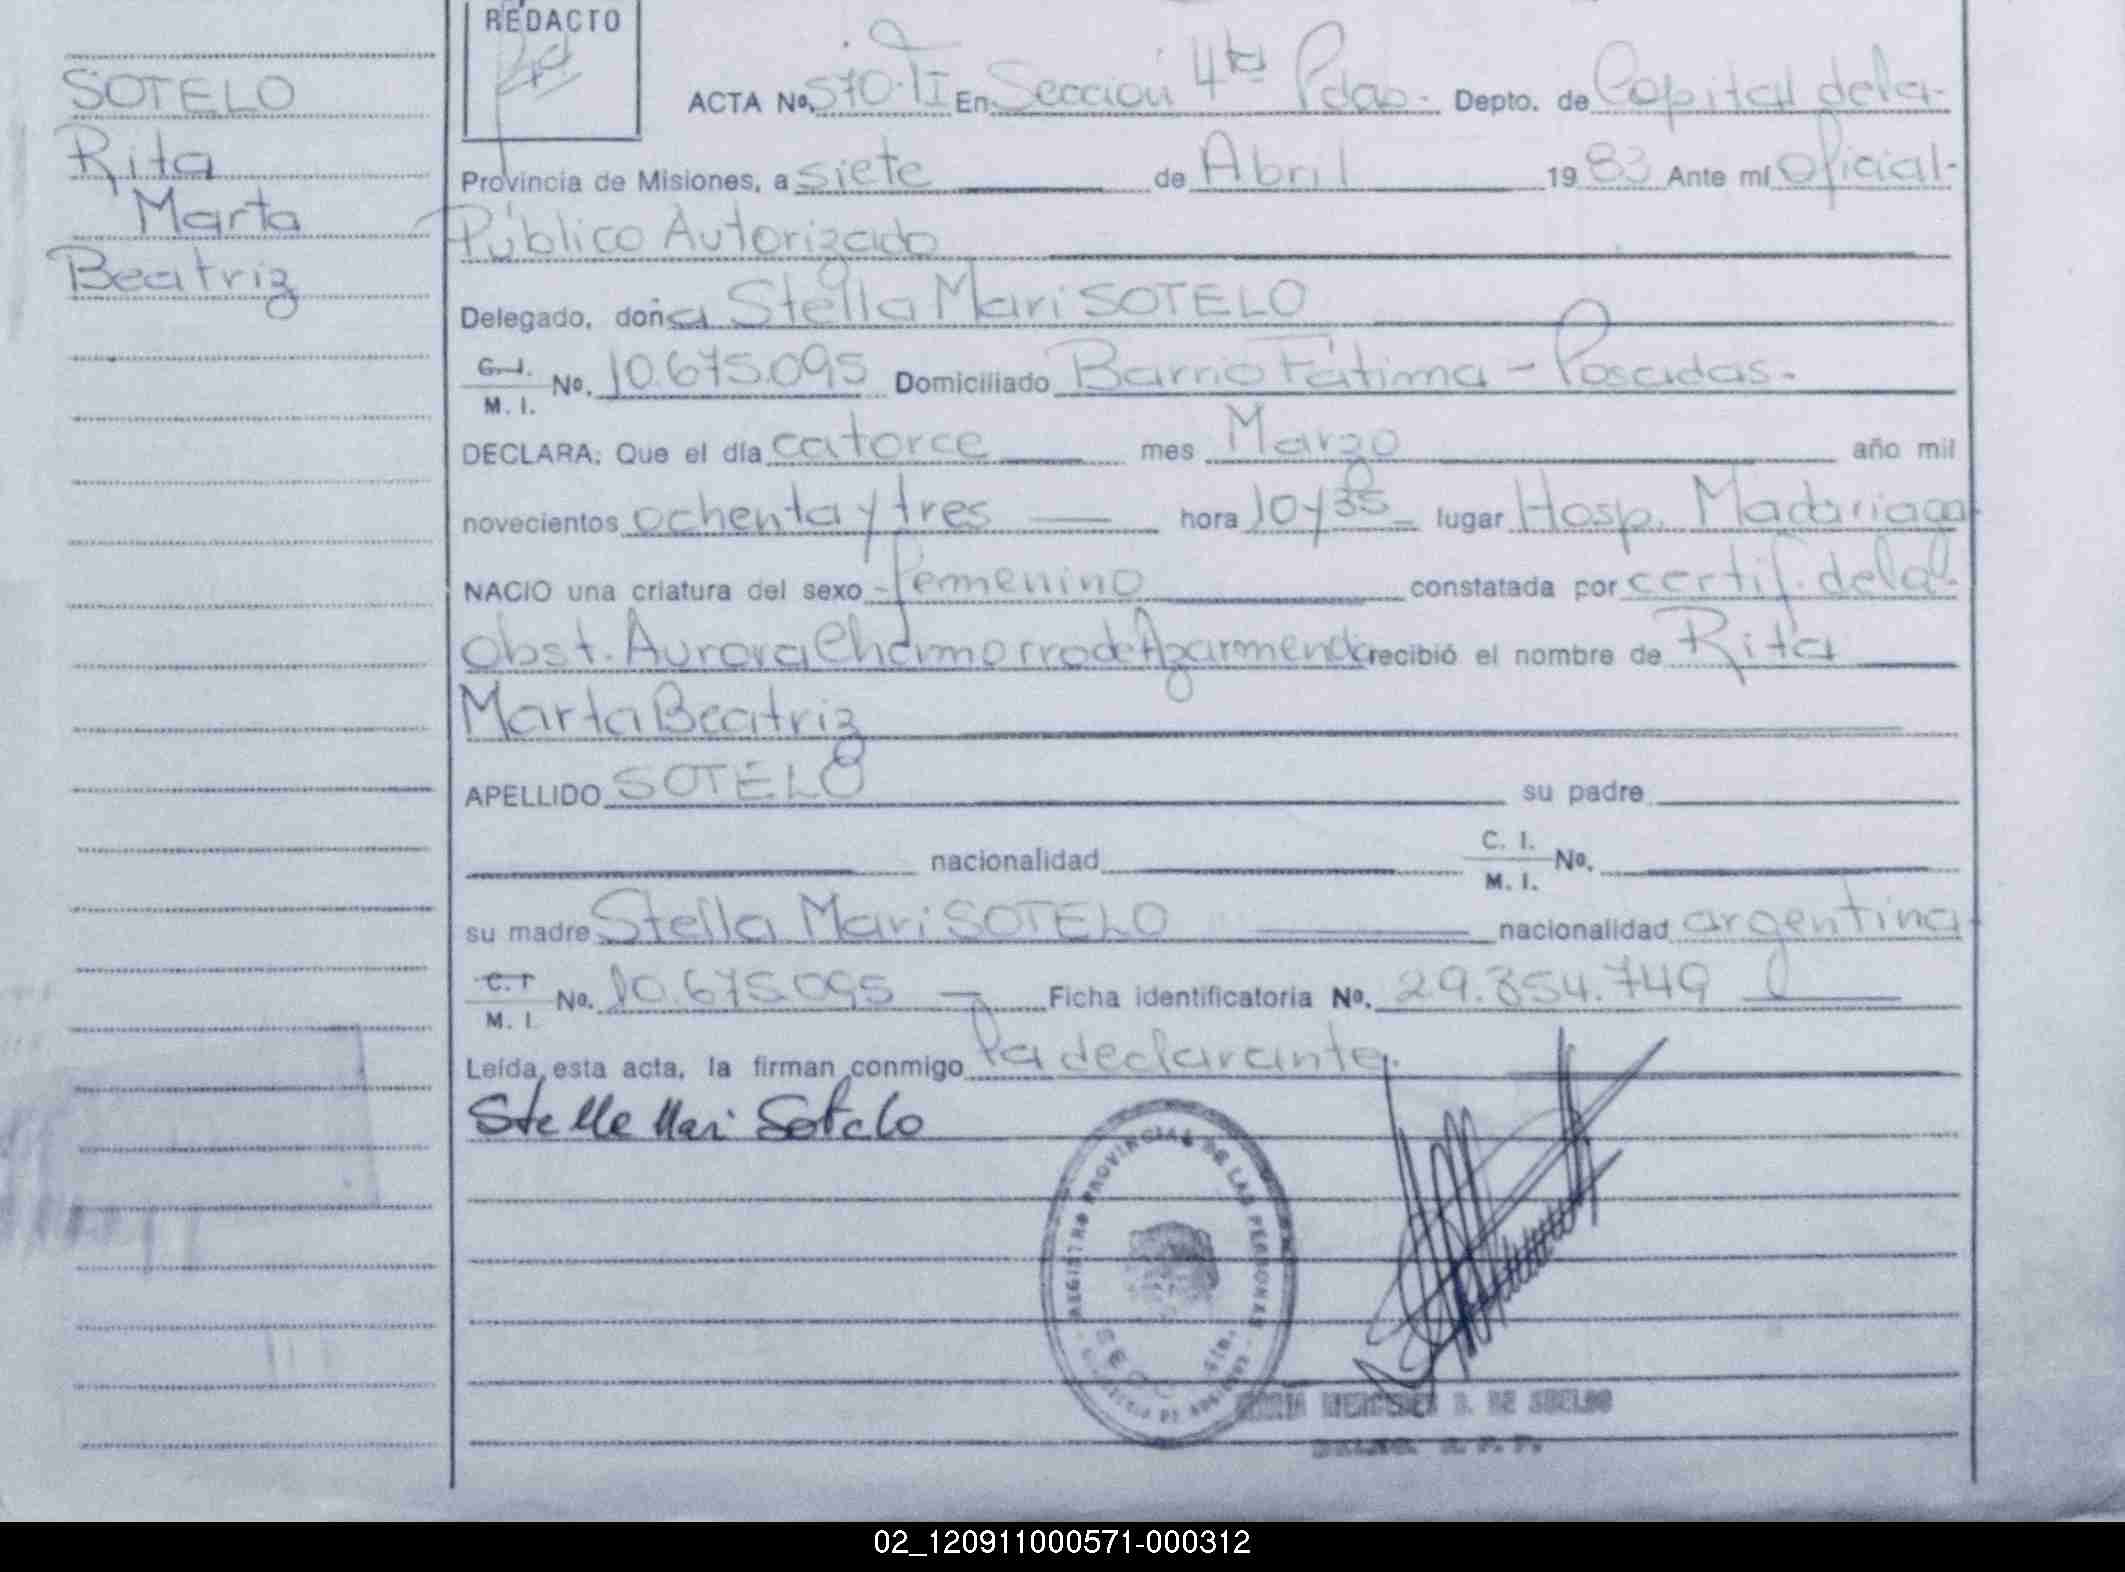 REDACTO
SOTELO
Rita
Marta
Beatriz
ACTA Nº. 570·TI En Sección 4ta Pdas. Depto. de Capital de la
Provincia de Misiones, a siete de Abril 1983 Ante mí Oficial
Público Autorizado
Delegado, doña Stella Mari SOTELO
C. I. M. I. Nº. 10.675.095 Domiciliado Barrio Fátima - Posadas.
DECLARA: Que el día catorce mes Marzo año mil
novecientos ochenta y tres hora 10 y 35 lugar Hosp. Madariaga
NACIO una criatura del sexo femenino constatada por certif. de la
Obst. Aurora Chamorro de recibió el nombre de Rita
Marta Beatriz
APELLIDO SOTELO su padre
nacionalidad C. I. M. I. Nº.
su madre Stella Mari SOTELO nacionalidad argentina
C. I. M. I. Nº. 10.675.095 Ficha identificatoria Nº. 29.854.749
Leída esta acta, la firman conmigo la declarante.
Stella Mari Sotelo
REGISTRO PROVINCIAL DE LAS PERSONAS
SECC. 4ta.
02_120911000571-000312